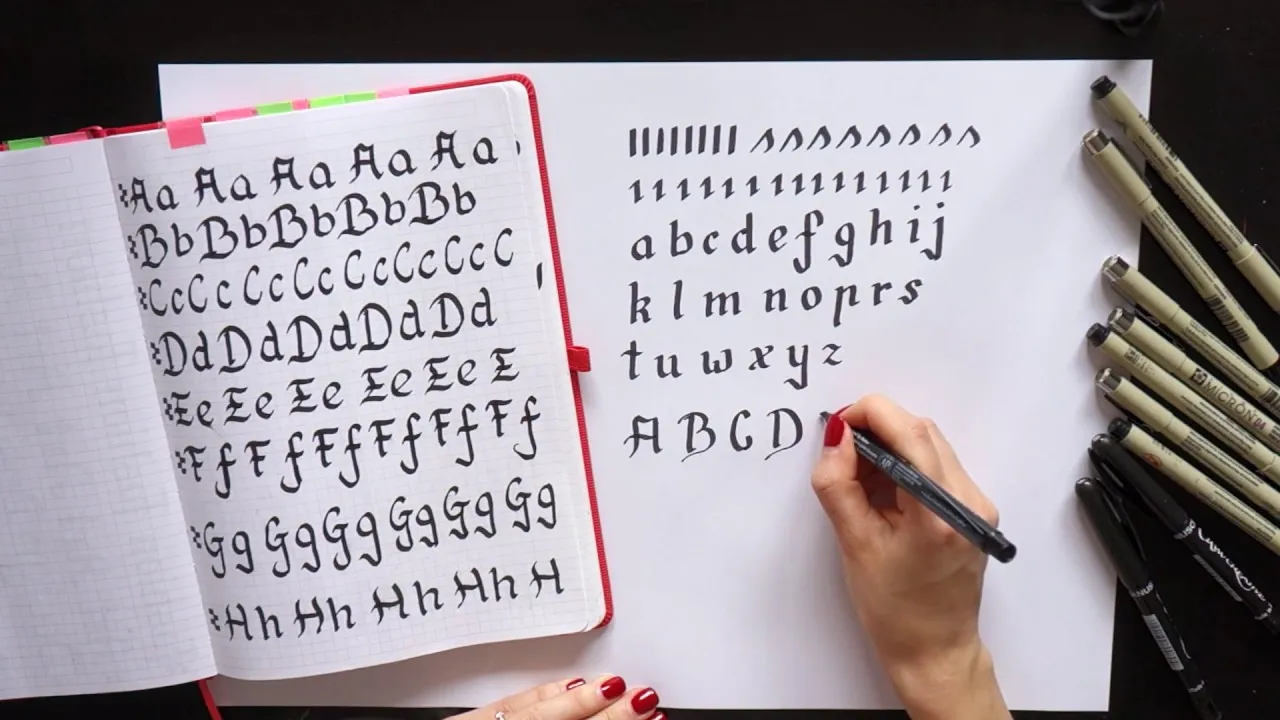 Aa Aa Aa Aa Aa
BbBbBbBbBb
CcCcCcCcCcCcC
DdDdDdDdDd
Ee Ee Ee Ee E
FfFfFfFfFfFf
GgGgGgGgGgGg
Hh Hh Hh Hh H
ııııııııııııııı
abcdefghij
klmnoprs
tuwxyz
ABCD
MICRON